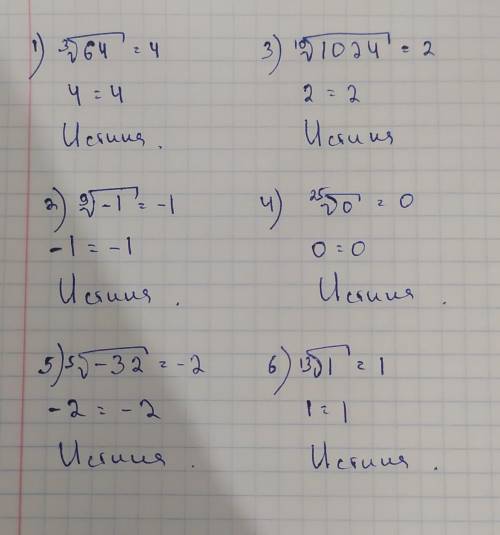 1) ³√64 = 4
4 = 4
Истина.
3) ¹⁰√1024 = 2
2 = 2
Истина
2) ⁹√-1 = -1
-1 = -1
Истина.
4) ²⁵√0 = 0
0 = 0
Истина.
5) ⁵√-32 = -2
-2 = -2
Истина.
6) ¹³√1 = 1
1 = 1
Истина.